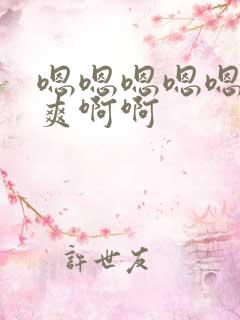 嗯嗯嗯嗯嗯
爽啊啊
許世友